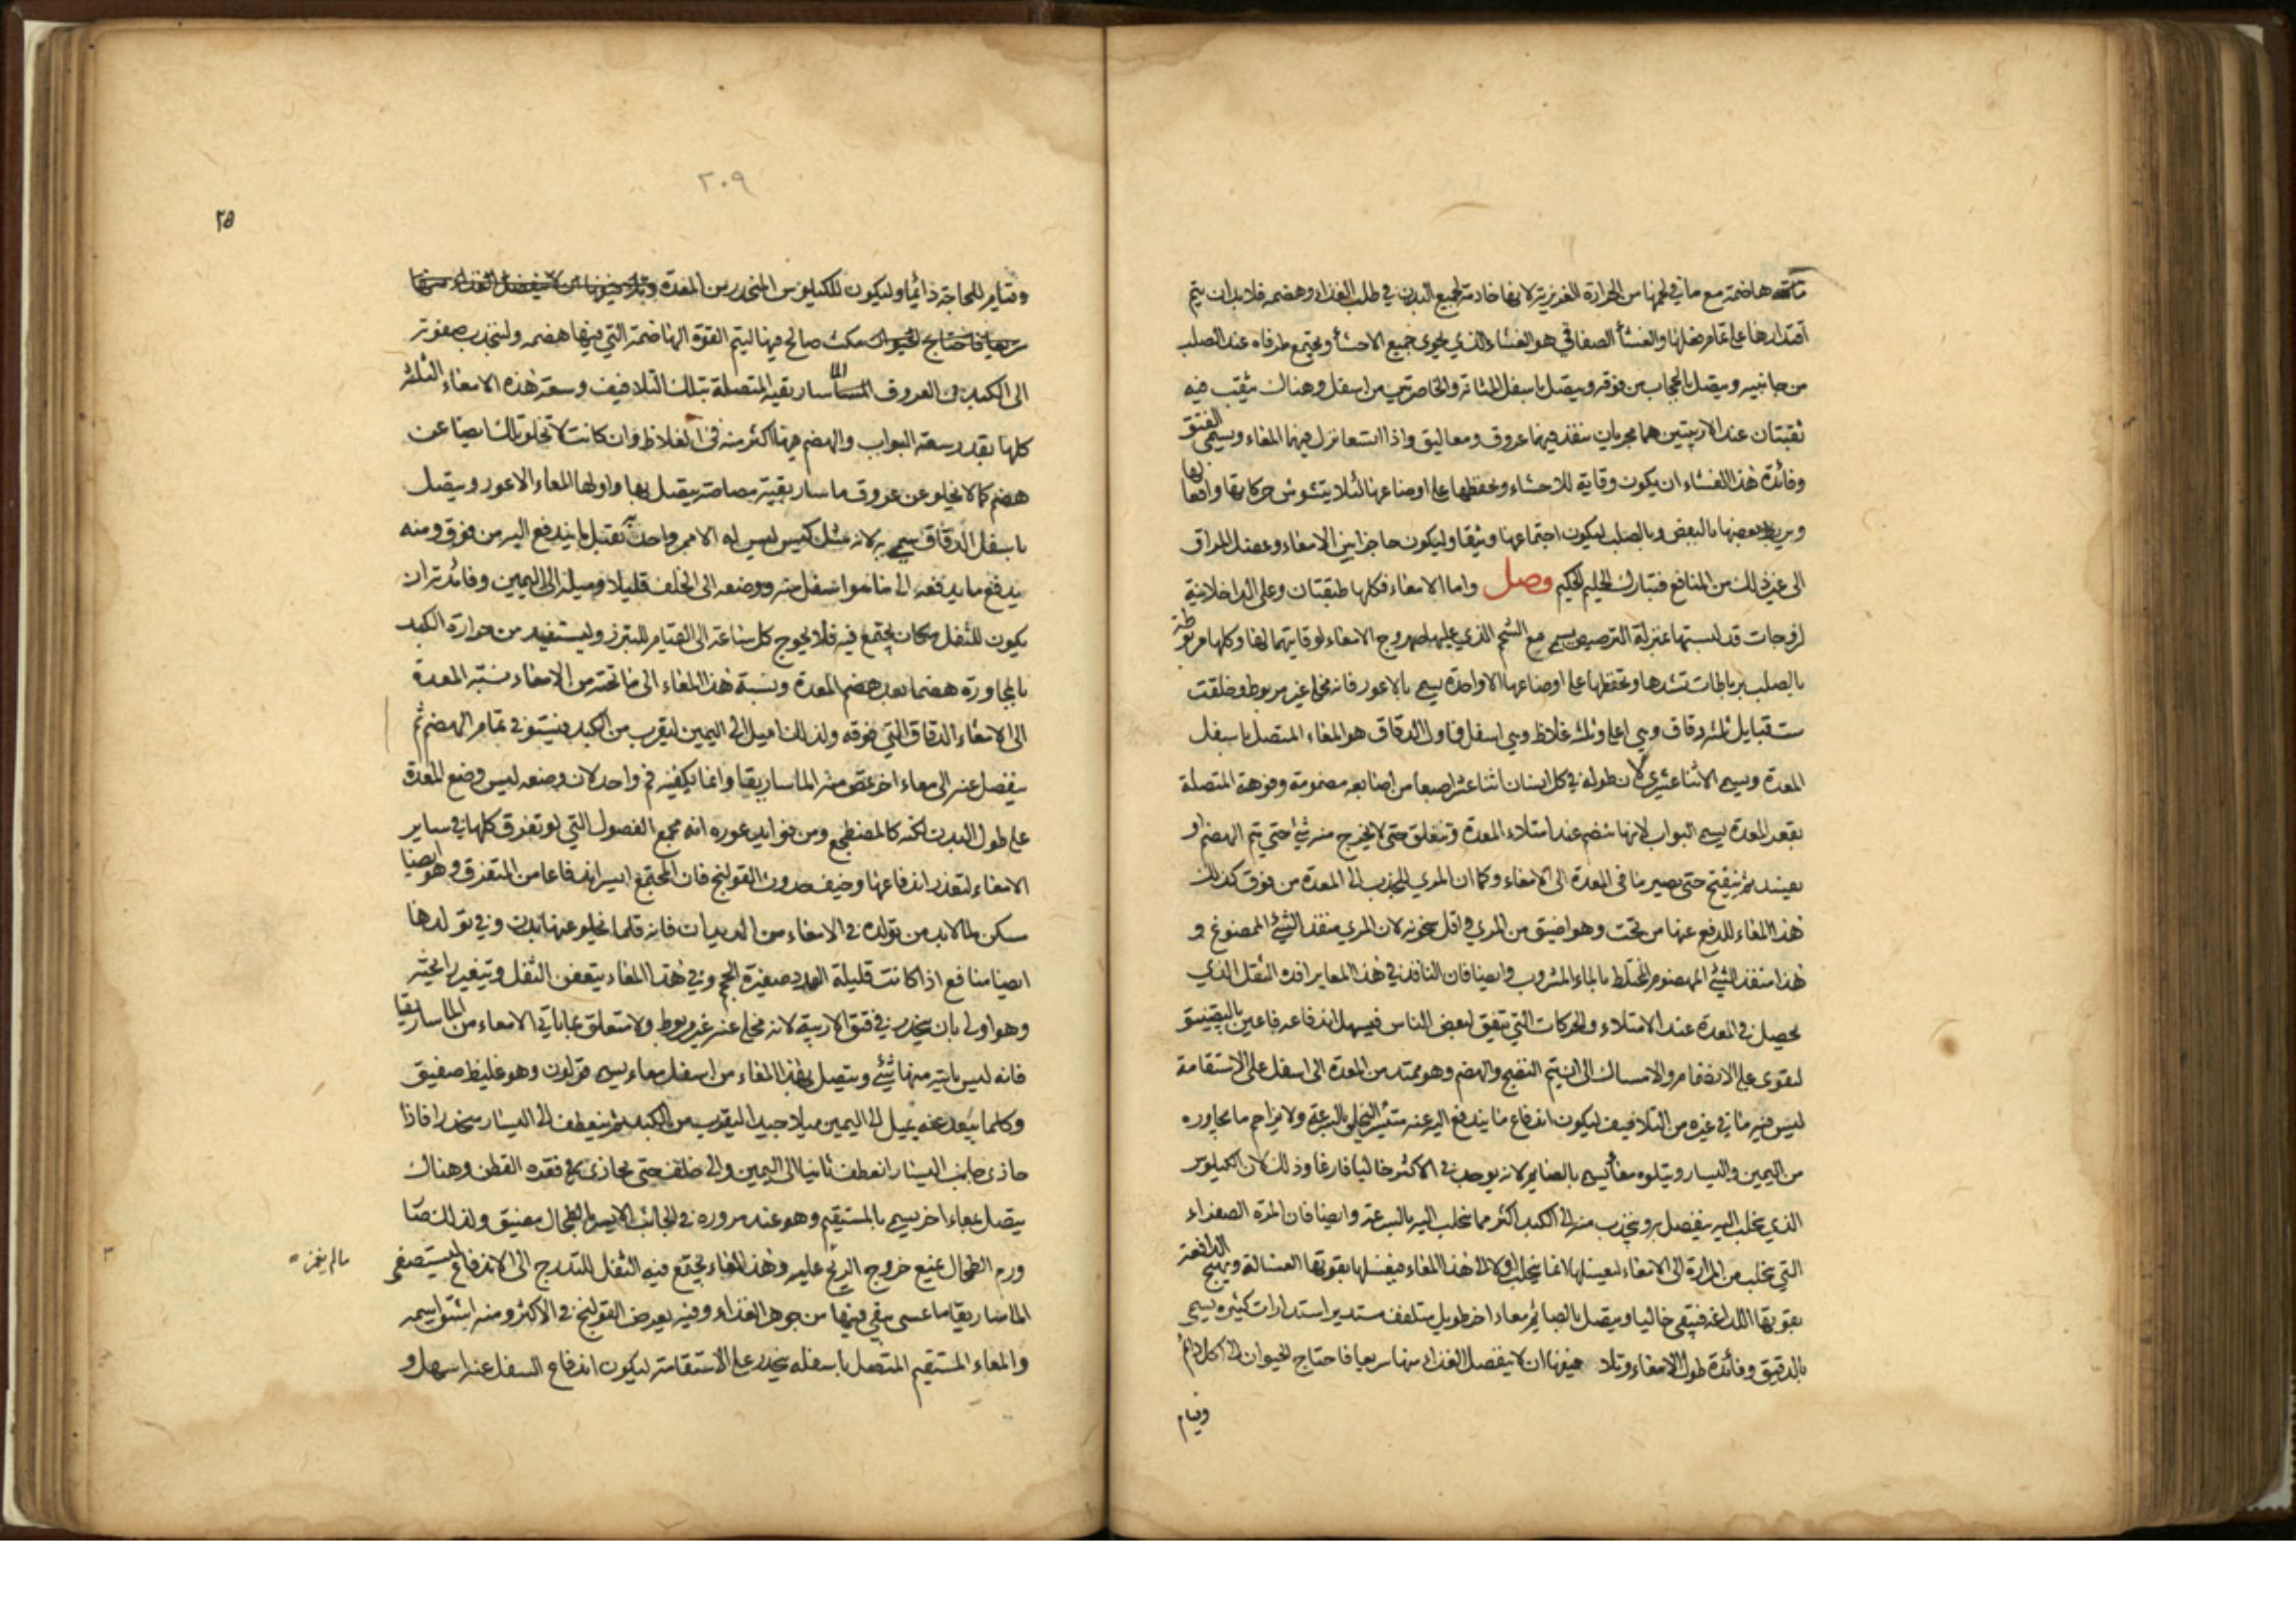 هاضمة مع ما في لحمها من الحرارة الغريزية لانها خادمة لجميع البدن في طلب الغذاء وهضمه فلابد ان يتم
اقتدارها على تمام فعلها والغشأ الصفاقي هو الغشاء الذي يحوي جميع الاحشأ ويجتمع طرفاه عند الصلب
من جانبيه ويتصل بالحجاب من فوقه ويتصل باسفل المثانة والخاصرتين من اسفل وهناك يثقب فيه
ثقبتان عند الاربيتين هما مجريان ينفذ فيهما عروق ومعاليق واذا اتسعا نزل فيهما المعاء ويسمى الفتق
وفائدة هذا الغشاء ان يكون وقاية للاحشاء ويحفظها على اوضاعها لئلا يتشوش حركاتها وافعالها
ويربط بعضها بالبعض وبالصلب ليكون اجتماعها وثيقا وليكون حاجزا بين الامعاء وعضل المراق
الى غير ذلك من المنافع فتبارك الحليم الحكيم وصل واما الامعاء فكلها طبقتان وعلى الداخلانية
لزوجات قد لبستها بمنزلة الترصيص يسمى مع الشحم الذي عليها صهروج الامعاء لوقايتهما لها وكلها مربوطة
بالصلب برباطات تشدها وتحفظها على اوضاعها الا واحدة يسمى بالاعور فانه مخلى غير مربوط وخلقت
ست قبايل ثلثه دقاق وهي اعلى وثلثه غلاظ وهي اسفل فاول الدقاق هو المعاء المتصل باسفل
المعدة ويسمى الاثنا عشري لان طوله في كل انسان اثنا عشر اصبعا من اصابعه مضمومة وفوهته المتصلة
بقعر المعدة يسمى البواب لانها تنضم عند امتلاء المعدة وتنغلق حتى لا يخرج منه شئ حتى يتم الهضم او
يفسد ثم ينفتح حتى يصير ما في المعدة الى الامعاء وكما ان المري للجذب الى المعدة من فوق كذلك
هذا المعاء للدفع عنها من تحت وهو اضيق من المري واقل سخونه لان المري منفذ الشئ الممضوغ و
هذا منفذ الشئ المهضوم المختلط بالماء المشروب وايضا فان النافذ في هذا المعا يرافده الثقل الذي
يحصل في المعدة عند الامتلاء والحركات التي يتفق لبعض الناس فيسهل اندفاعه فاعين بالتضييق
ليقوى على الانضمام والامساك الى ان يتم النضج والهضم وهو ممتد من المعدة الى اسفل على الاستقامة
ليس فيه ما في غيره من التلافيف ليكون اندفاع ما يندفع اليه عنه متيسرا بالسرعة ولا يزاحم ما يجاوره
من اليمين واليسار ويتلوه معأ يسمى بالصايم لانه يوجد في الاكثر خاليا فارغا وذلك لان الكيلوس
الذي ينجلب اليه ينفصل وينجذب منه الى الكبد اكثر مما ينجلب اليه بالسرعة وايضا فان المرة الصفراء
التي ينجلب من المرارة الى الامعاء لغسلها انما ينجلب اولا الى هذا المعاء فيغسلها بقوتها الغسالة ويهيج الدافعة
بقوتها اللذاعة فيبقى خاليا ويتصل بالصايم معاء اخر طويل متلفف مستدير استدارات كثيره يسمى
بالدقيق وفائدة طول الامعاء وتلا فيفها ان لا ينفصل الغذاء منها سريعا فاحتاج الحيوان الى اكل دائم
وقيام
٢٠٩
٢٥
وقيام للحاجة دائما وليكون للكيلوس المنحدر من المعدة وتلافيفها ان لا ينفصل الغذاء منها
سريعا فاحتاج الحيوان مكث صالح فيها ليتم القوة الهاضمة التي فيها هضمه ولينجذب صفوته
الى الكبد في العروق الماساريقيه المتصلة بتلك التلافيف وسعة هذه الامعاء الثلثه
كلها بقدر سعة البواب والهضم فيها اكثر منه في الغلاظ وان كانت لا تخلو تلك ايضا عن
هضم كما لا يخلو عن عروق ماساريقية مصاصة يتصل بها واولها المعاء الاعور ويتصل
باسفل الدقاق سمي به لانه مثل كيس ليس له الا ممر واحد به يقبل ما يندفع اليه من فوق ومنه
يدفع ما يدفعه الى ما هو اسفل منه ووضعه الى الخلف قليلا وميله الى اليمين وفائدته ان
يكون للثفل مكان يجتمع فيه فلا يحوج كل ساعة الى القيام للتبرز وليستفيد من حرارة الكبد
بالمجاورة هضما بعد هضم المعدة ونسبة هذا المعاء الى ما تحته من الامعاء نسبة المعدة
الى الامعاء الدقاق التي فوقه ولذلك اميل الى اليمين ليقرب من الكبد فيستوفي تمام الهضم ثم
ينفصل عنه الى معاء اخر تمص منه الماساريقا وانما يكفيه فم واحد لان وضعه ليس وضع المعدة
على طول البدن لكنه كالمضطجع ومن فوايد عوره انه مجمع الفضول التي لو تفرق كلها في ساير
الامعاء لتعذر اندفاعها وخيف حدوث القولنج فان المجتمع ايسر اندفاعا من المتفرق وهو ايضا
مسكن ما لابد من تولده في الامعاء من الديدان فانه قلما يخلو عنها بدن وفي تولدها
ايضا منافع اذا كانت قليلة العدد صغيرة الحجم وفي هذا المعاء يتعفن الثفل ويتغير رايحته
وهو اولى بان ينحدر في فتق الاربية لانه مخلى عنه غير مربوط ولا متعلق بما ياتي الامعاء من الماساريقا
فانه ليس ياتيه منها شئ ويتصل بهذا المعاء من اسفل معاء يسمى قولون وهو غليظ صفيق
وكلما يبعد عنه يميل الى اليمين ميلا جيدا ليقرب من الكبد ثم ينعطف الى اليسار منحدرا فاذا
حاذى جانب اليسار انعطف ثانيا الى اليمين والى خلف حتى يحاذي فقرة القطن وهناك
يتصل بمعاء اخر يسمى بالمستقيم وهو عند مروره في الجانب الايسر بالطحال مضيق ولذلك صار
ورم الطحال يمنع خروج الريح عليه وهذا المعاء يجتمع فيه الثفل للتدرج الى الاندفاع ليستصفى
مالم يغمز
الماساريقا ما عسى بقي فيها من جوهر الغذاء وفيه يعرض القولنج في الاكثر ومنه اشتق اسمه
والمعاء المستقيم المتصل باسفله ينحدر على الاستقامة ليكون اندفاع السفل عنه اسهل و